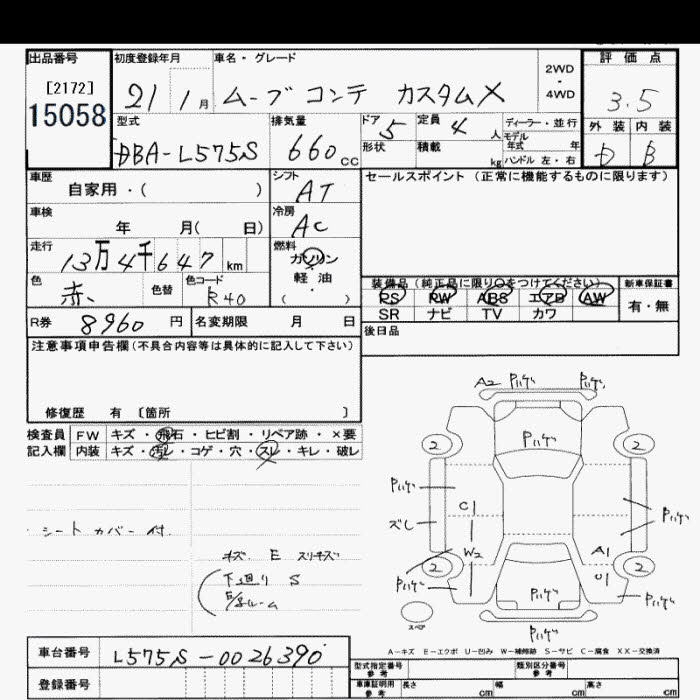 出品番号 初度登録年月 車名・グレード 評価点
[2172] 2WD
15058 21 1月 ムーブ コンテ カスタムX ・ 4WD 3.5
型式 排気量 ドア 5 定員 4 人 ディーラー・並行 外装 内装
モデル年式 年
DBA-L575S 660cc 形状 積載 kg ハンドル 左・右 D B
車歴 自家用・( ) シフト AT セールスポイント (正常に機能するものに限ります)
車検 年 月( 日) 冷房 AC
走行 13万4千647km 燃料 ガソリン
軽・油
( ・ )
色 赤 色替 色コード R40 装備品 (純正品に限り○をつけてください) 新車保証書
PS PW ABS エアB AW 有・無
R券 8960 円 名変期限 月 日 SR ナビ TV カワ
注意事項申告欄 (不具合内容等は具体的に記入して下さい) 後日品
修復歴 有 〔箇所 〕
検査員 FW キズ・飛石・ヒビ割・リペア跡・×要
記入欄 内装 キズ・汚レ・コゲ・穴・スレ・キレ・破レ
A2 Pハゲ Pハゲ
2 Pハゲ 2
Pハゲ C1 Pハゲ
ズレ
・シートカバー付.
W2 A1
キズ E スリキズ
2 U1 2
下廻り S
Pハゲ Pハゲ Pハゲ
スペア Pハゲ
A－キズ E－エクボ U－凹み W－補修跡 S－サビ C－腐食 XX－交換済
車台番号 L575S-0026390
登録番号 型式指定番号 参考 類別区分番号 参考
車庫証明用 参考 長さ cm 幅 cm 高さ cm